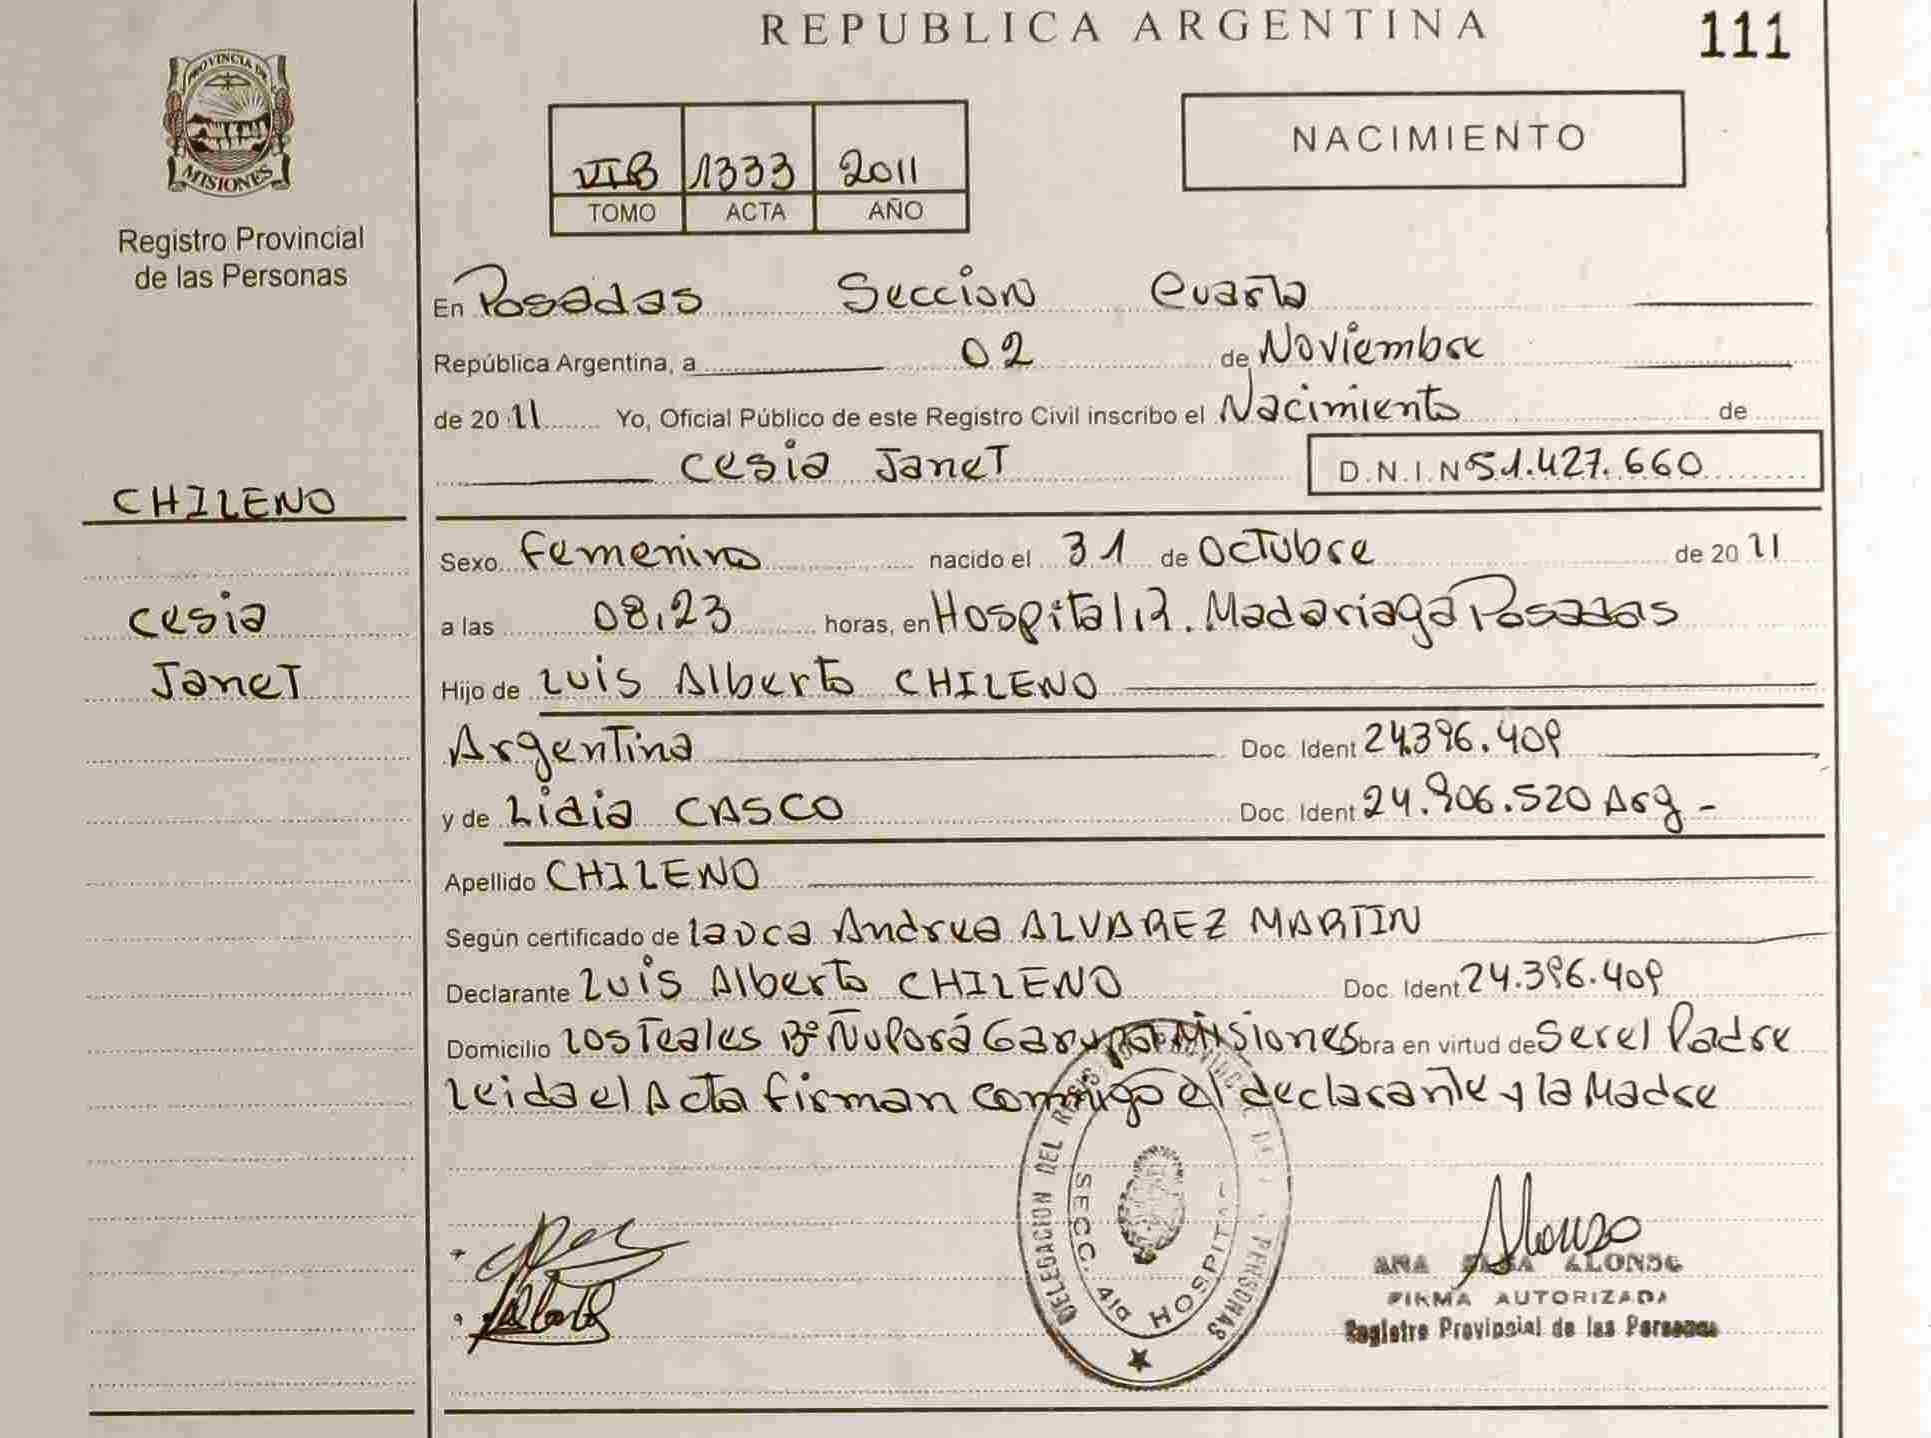 REPUBLICA ARGENTINA
111
PROVINCIA DE
MISIONES
Registro Provincial
de las Personas
VIB 1333 2011
TOMO ACTA AÑO
NACIMIENTO
En Posadas Seccion Cuarta
República Argentina, a 02 de Noviembre
de 2011 Yo, Oficial Público de este Registro Civil inscribo el Nacimiento de
Cesia Janet D.N.I.N 51.427.660
CHILENO
Sexo Femenino nacido el 31 de Octubre de 2011
Cesia
a las 08,23 horas, en Hospital R. Madariaga Posadas
Janet
Hijo de Luis Alberto CHILENO
Argentina Doc. Ident 24.396.409
y de Lidia CASCO Doc. Ident 24.906.520 Arg -
Apellido CHILENO
Según certificado de Laura Andrea ALVAREZ MARTIN
Declarante Luis Alberto CHILENO Doc. Ident. 24.396.409
Domicilio Los Teales Bº Ñu Porá Garupa Misiones bra en virtud de Ser el Padre
Leida el Acta firman conmigo el declarante y la Madre
DELEGACION DEL REGISTRO PROVINCIAL DE LAS PERSONAS
SECC. 4ta HOSPITAL
Alonso
ANA ELSA ALONSO
FIRMA AUTORIZADA
Registro Provincial de las Personas